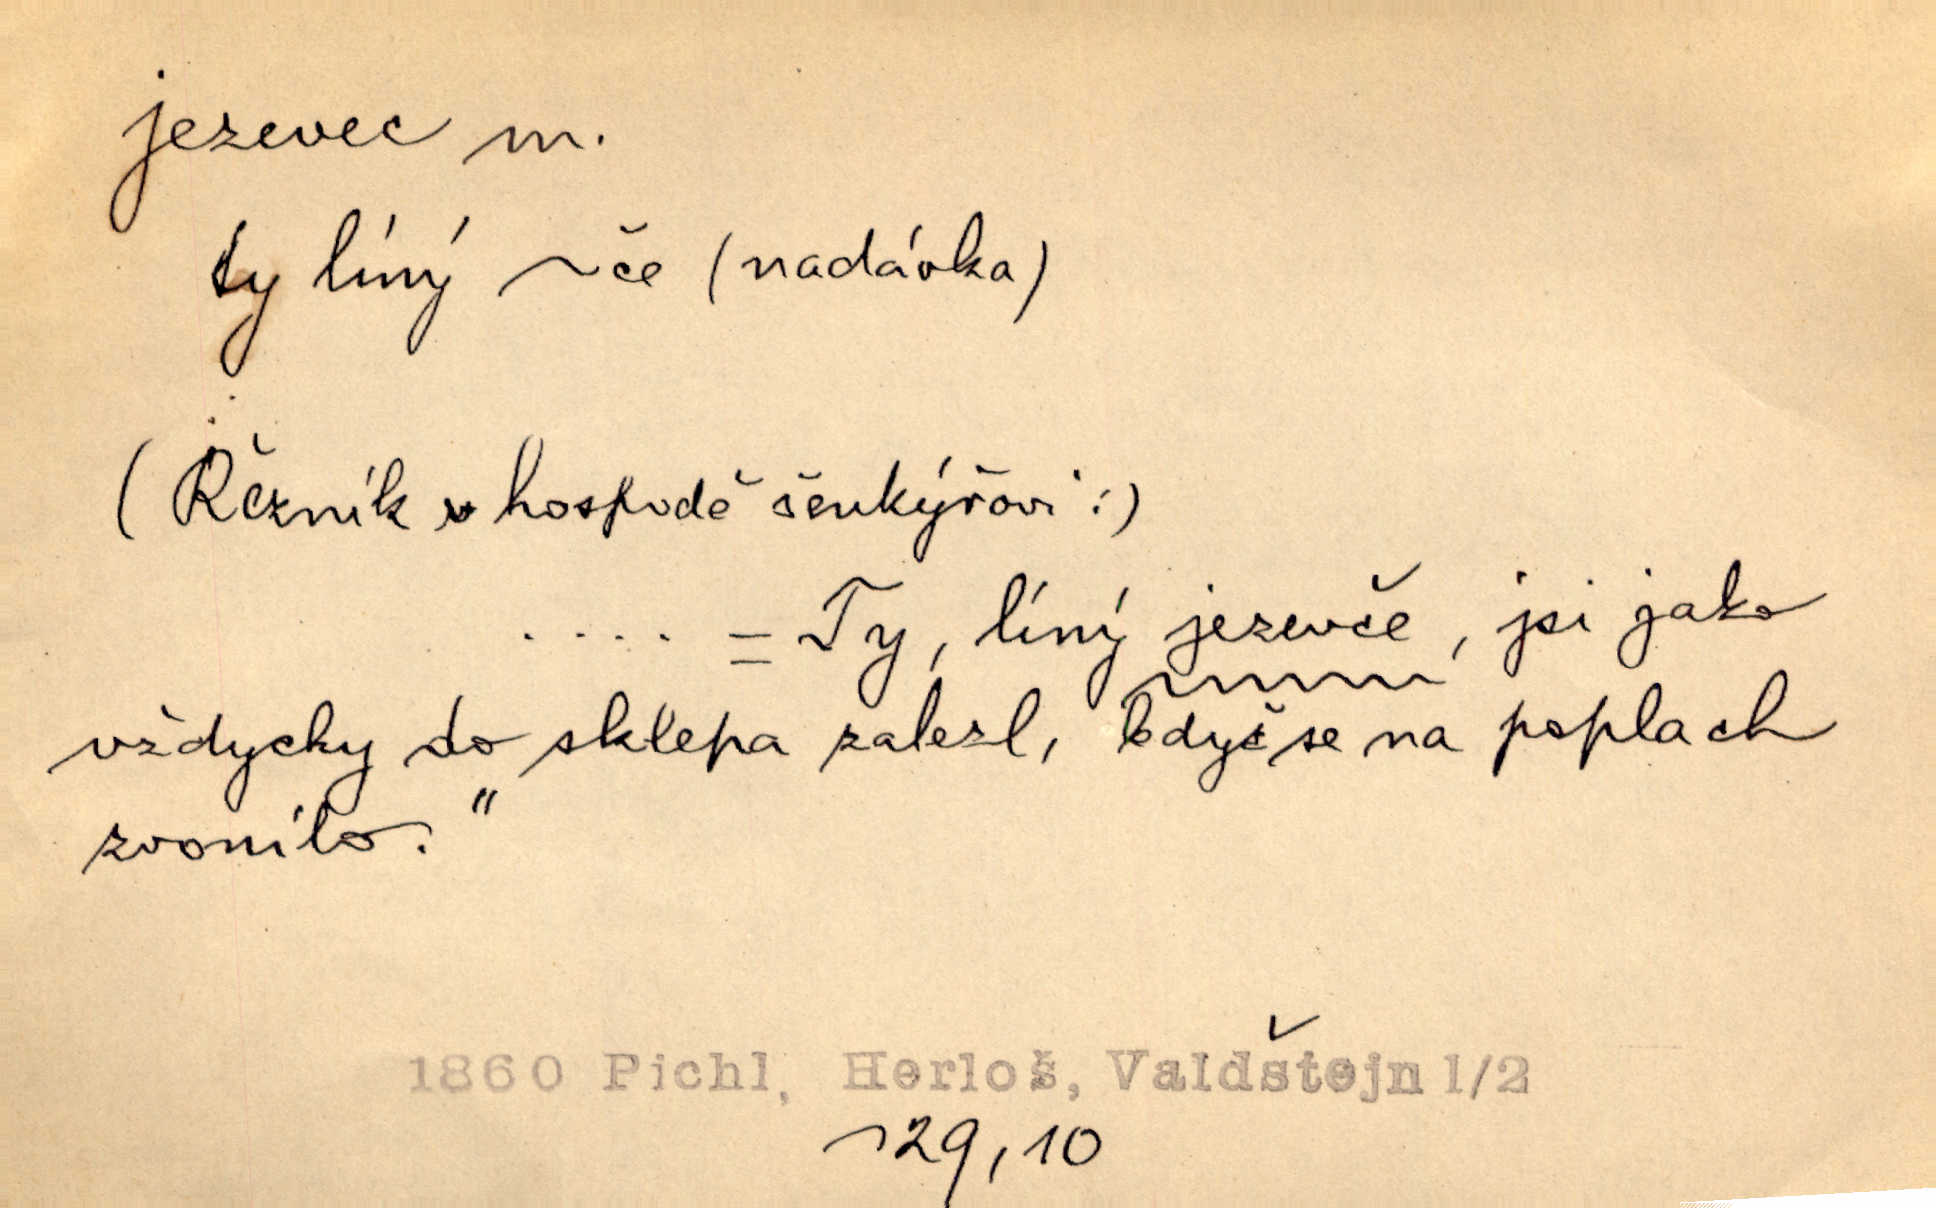 jezevec m.
ty líný ~če (nadávka)
(Řezník v hospodě šenkýřovi:)
.... = Ty, líný jezevče, jsi jako
vždycky do sklepa zalezl, když se na poplach
zvonilo."
1860 Pichl, Herloš, Valdštejn 1/2
129, 10